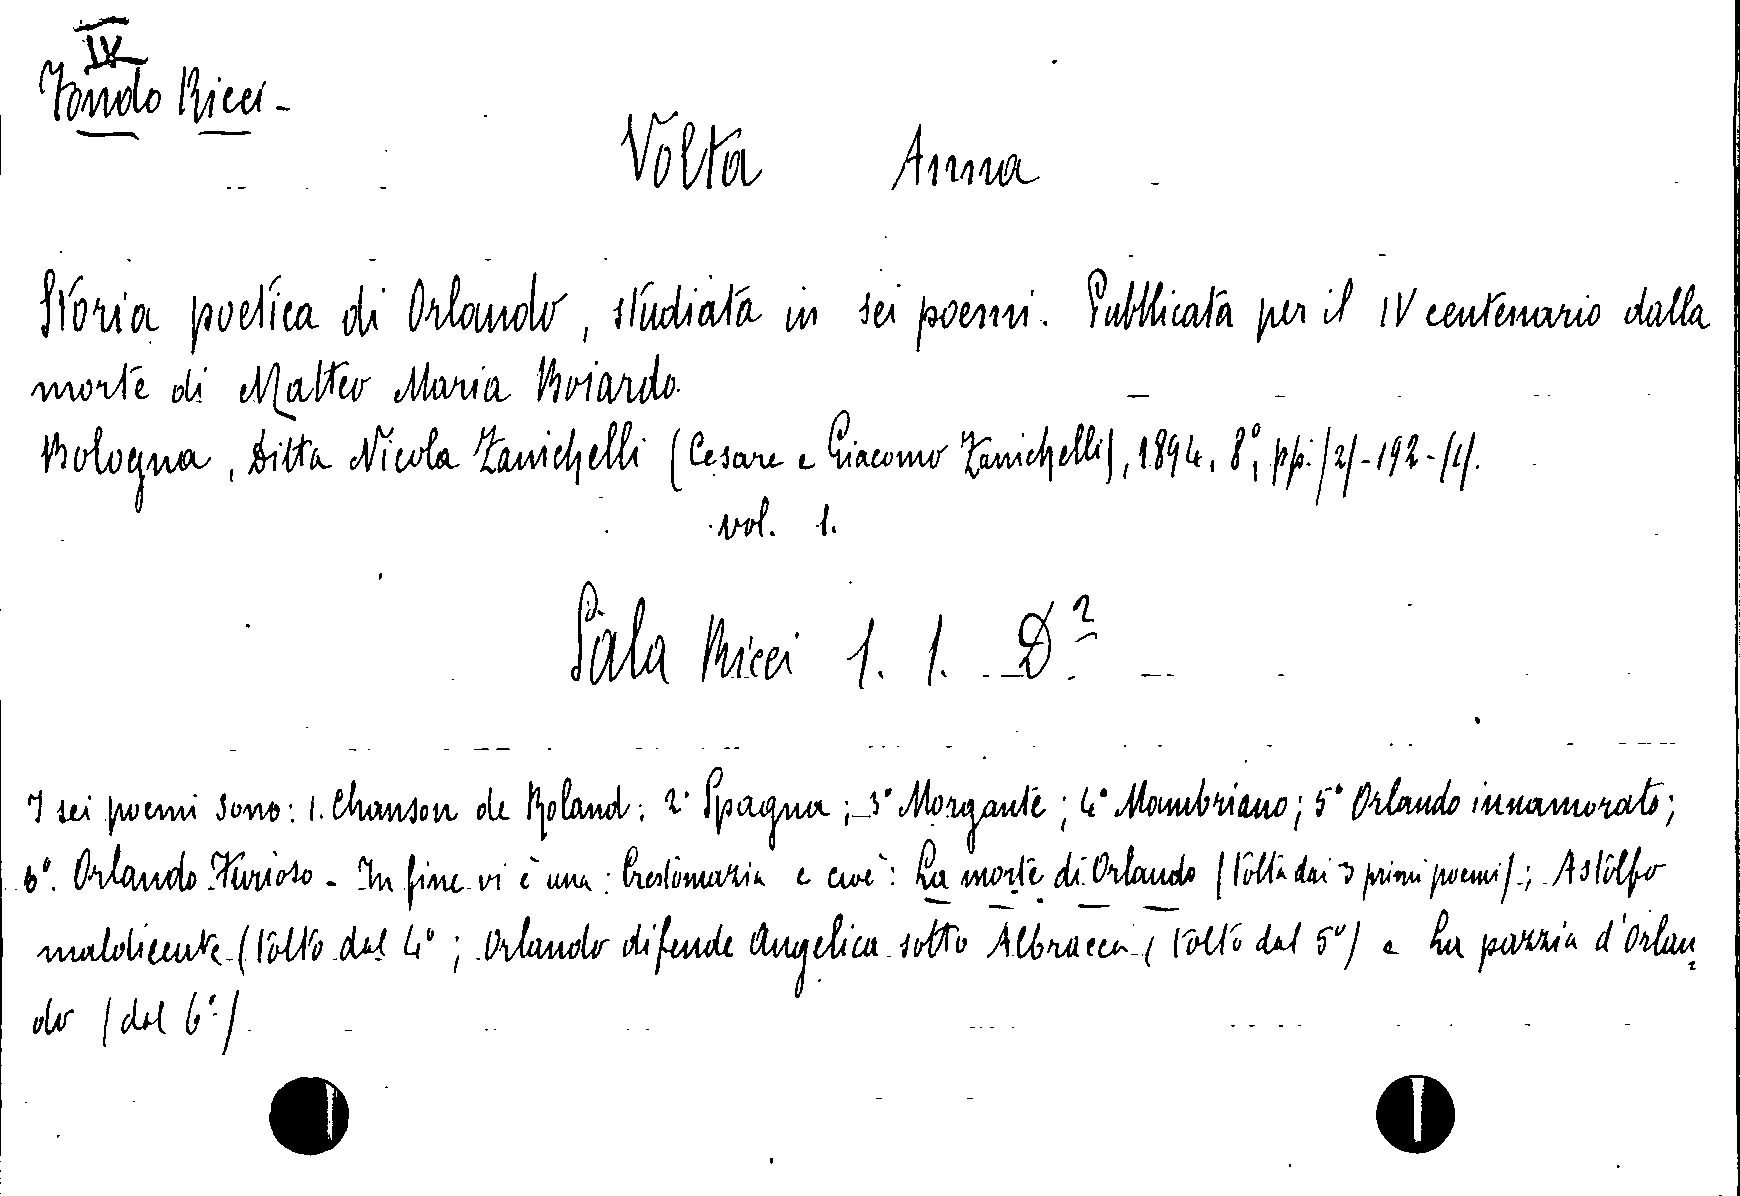 IV
Fondo Ricci -
Volta Anna
Storia poetica di Orlando, studiata in sei poemi. Pubblicata per il IV centenario dalla
morte di Matteo Maria Boiardo.
Bologna, Ditta Nicola Zanichelli (Cesare e Giacomo Zanichelli), 1894, 8°, pp. /2/-192-/4/.
vol. 1.
Sala Ricci 1. 1. D²
I sei poemi sono: 1. Chanson de Roland; 2° Spagna; 3° Morgante; 4° Mambriano; 5° Orlando innamorato;
6°. Orlando Furioso - In fine vi è una: Crestomazia e cioè: La morte di Orlando (tolta dai 3 primi poemi); Astolfo
maldicente (tolto dal 4°; Orlando difende Angelica sotto Albracca (tolto dal 5°) e La pazzia d'Orlan-
do (dal 6°)